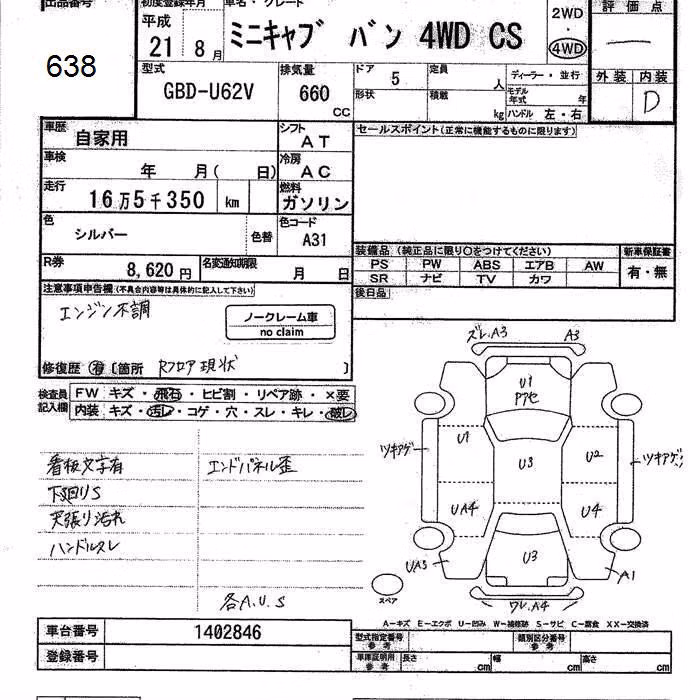 出品番号
638
初度登録年月
平成
21 8 月
車名・グレード
ミニキャブ バン 4WD CS
2WD
・
4WD
評価点
型式
GBD-U62V
排気量
660
CC
ドア
5
定員
人
形状
積載
kg
ディーラー・並行
モデル年式 年
ハンドル 左・右
外装 内装
D
車歴
自家用
シフト
AT
車検
年 月( 日)
冷房
AC
走行
16万5千350 km
燃料
ガソリン
色
シルバー
色替
色コード
A31
R券
8,620 円
名変通知期限
月 日
セールスポイント(正常に機能するものに限ります)
装備品 (純正品に限り○をつけてください)
PS PW ABS エアB AW
SR ナビ TV カワ
新車保証書
有・無
後日品
注意事項申告欄(不具合内容等は具体的に記入して下さい)
エンジン不調
ノークレーム車
no claim
修復歴 有 [箇所 Rフロア現状 ]
検査員記入欄
FW キズ・飛石・ヒビ割・リペア跡・×要
内装 キズ・汚レ・コゲ・穴・スレ・キレ・破レ
看板文字有
エンドパネル歪
下回りS
天張り汚れ
ハンドルスレ
各A.U.S
ズレ.A3
A3
U1
ツキアゲ
U1
U3
U2
ツキアゲ
UA4
U4
UA3
U3
A1
スペア
ワレ.A4
A-キズ E-エクボ U-凹み W-補修跡 S-サビ C-腐食 XX-交換済
車台番号
1402846
登録番号
型式指定番号
参考
類別区分番号
参考
車庫証明用
参考
長さ cm
幅 cm
高さ cm